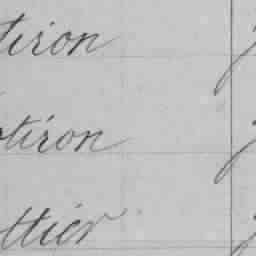 tiron
otiron
ttier